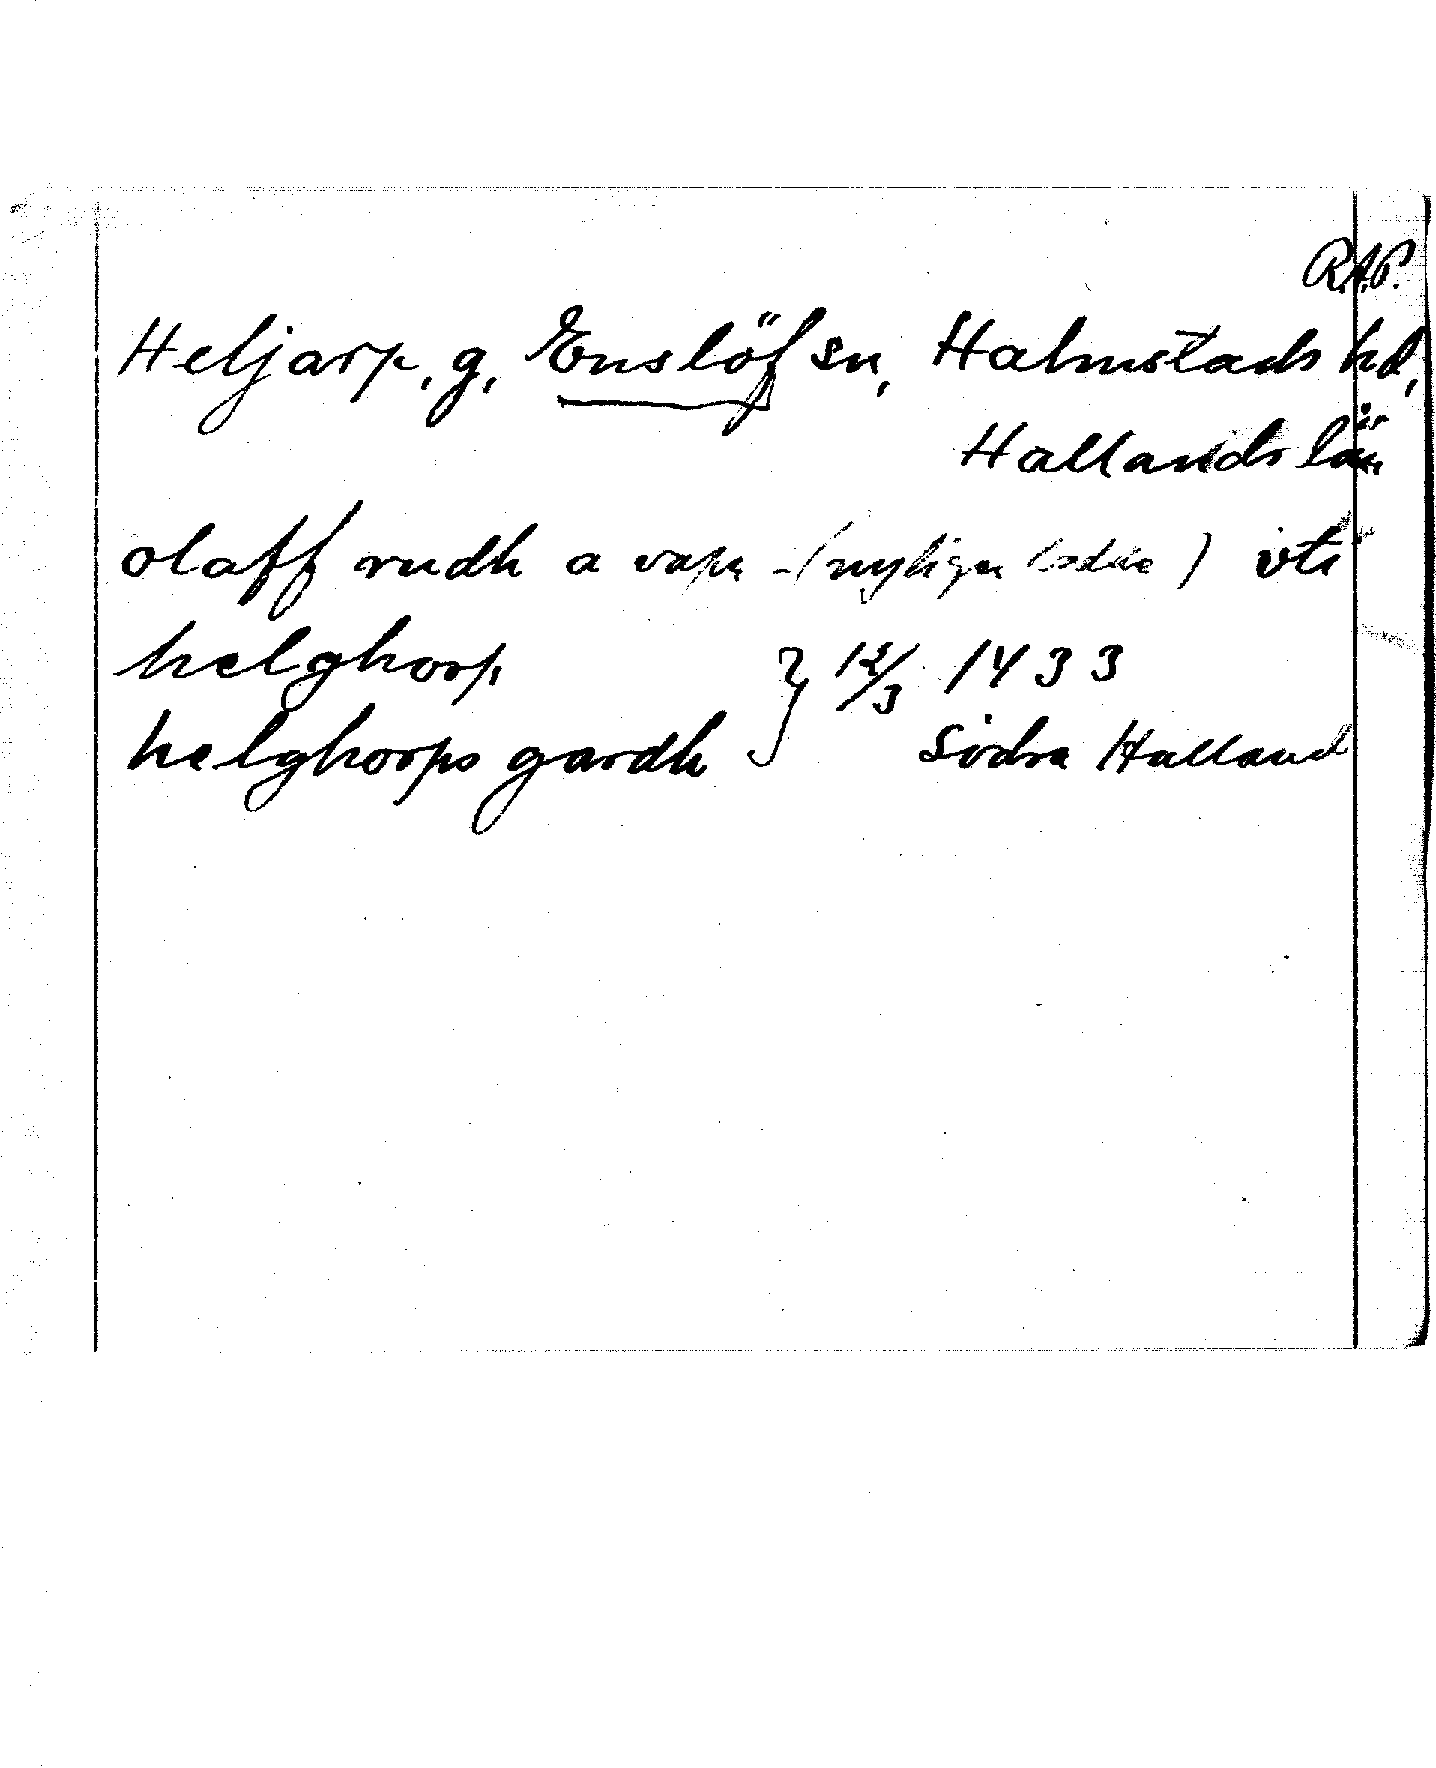 R.A.P.
Heljarp, g, Enslöf sn, Halmstads hd,
Hallands län
olaff rudh a vapn - (nyligen ) vti
helghorp } 12/3 1433
helghorps gardh Södra Halland